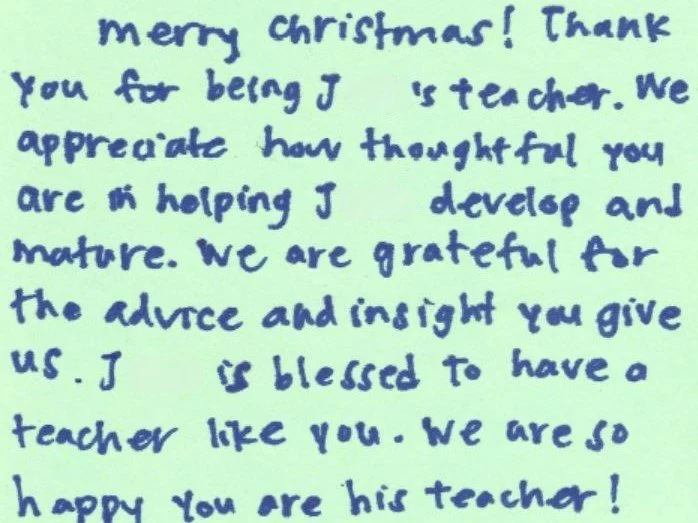 merry christmas! Thank
you for being J 's teacher. We
appreciate how thoughtful you
are in helping J develop and
mature. We are grateful for
the advice and insight you give
us. J is blessed to have a
teacher like you. We are so
happy you are his teacher!